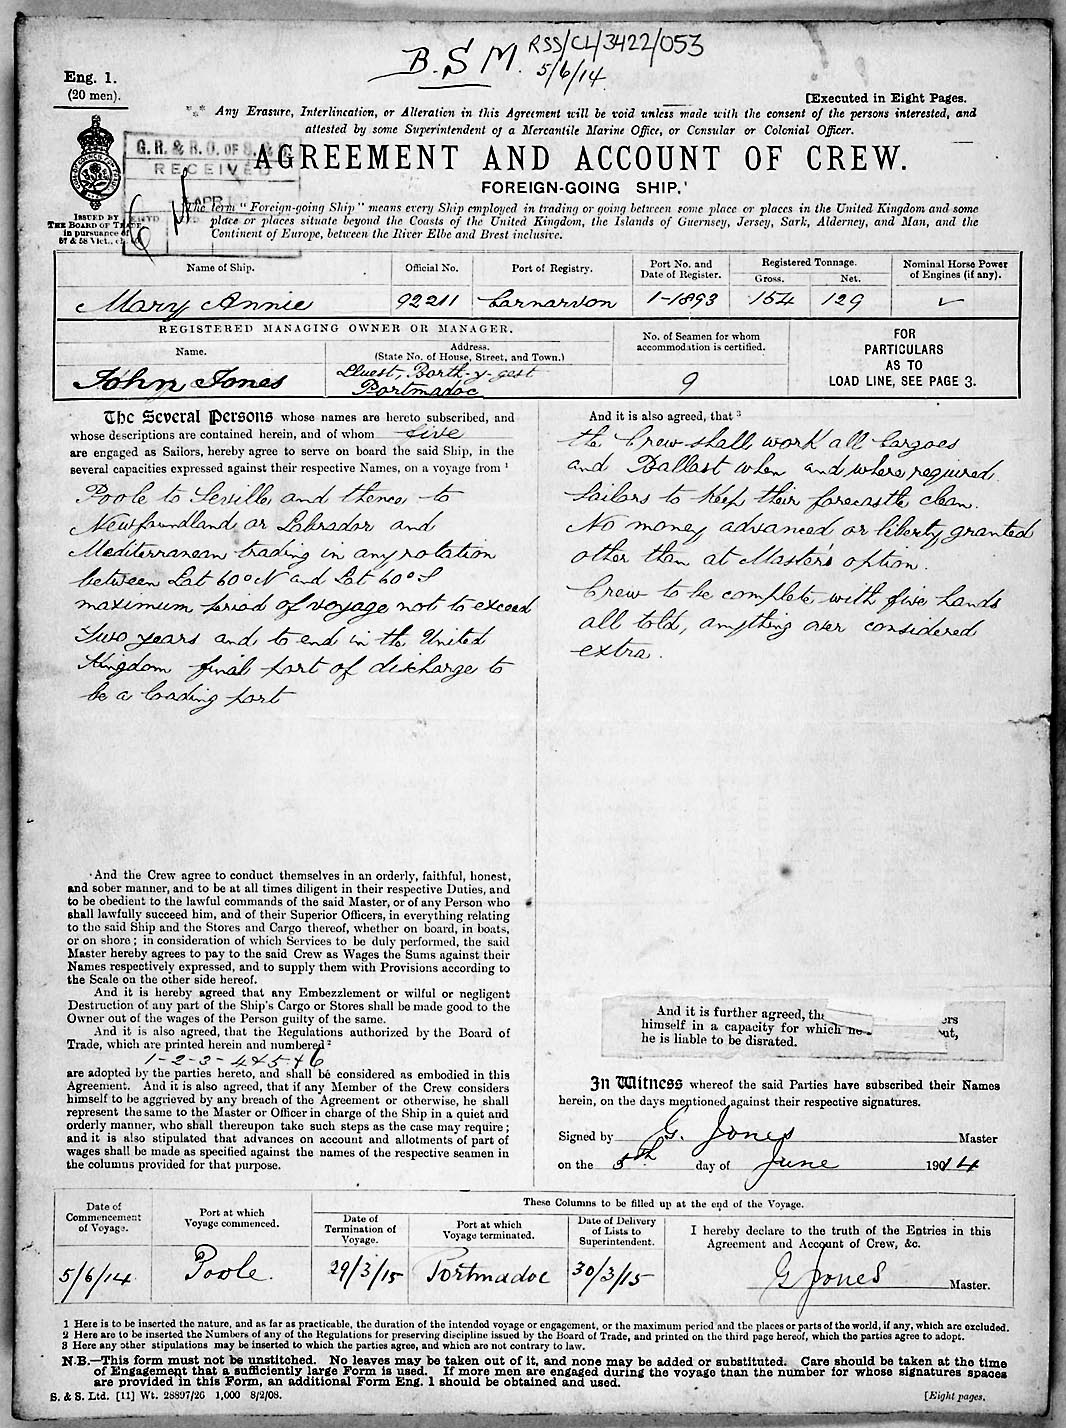 B.S M. RSS/CL/3422/053
5/6/14
Eng. 1.
(20 men).
[Executed in Eight Pages.
*** Any Erasure, Interlineation, or Alteration in this Agreement will be void unless made with the consent of the persons interested, and
attested by some Superintendent of a Mercantile Marine Office, or Consular or Colonial Officer.
G. R. & R. O. OF S. &
RECEIVED
APR
AGREEMENT AND ACCOUNT OF CREW.
FOREIGN-GOING SHIP.
The term "Foreign-going Ship" means every Ship employed in trading or going between some place or places in the United Kingdom and some
place or places situate beyond the Coasts of the United Kingdom, the Islands of Guernsey, Jersey, Sark, Alderney, and Man, and the
Continent of Europe, between the River Elbe and Brest inclusive.
ISSUED BY
THE BOARD OF TRADE
in pursuance of
57 & 58 Vict., ch. 60
Name of Ship. Official No. Port of Registry. Port No. and Date of Register. Registered Tonnage. Gross. Net. Nominal Horse Power of Engines (if any).
Mary Annie 92211 Carnarvon 1-1893 154 129
REGISTERED MANAGING OWNER OR MANAGER.
Name. Address. (State No. of House, Street, and Town.)
No. of Seamen for whom
accommodation is certified.
FOR
PARTICULARS
AS TO
LOAD LINE, SEE PAGE 3.
John Jones Lluest, Borth-y-gest
Portmadoc
9
The Several Persons whose names are hereto subscribed, and
whose descriptions are contained herein, and of whom five
are engaged as Sailors, hereby agree to serve on board the said Ship, in the
several capacities expressed against their respective Names, on a voyage from 1
Poole to Seville and thence to
Newfoundland or Labrador and
Mediterranean trading in any rotation
between Lat 60° N and Lat 60° S
maximum period of voyage not to exceed
Two years and to end in the United
Kingdom final port of discharge to
be a loading port
And the Crew agree to conduct themselves in an orderly, faithful, honest,
and sober manner, and to be at all times diligent in their respective Duties, and
to be obedient to the lawful commands of the said Master, or of any Person who
shall lawfully succeed him, and of their Superior Officers, in everything relating
to the said Ship and the Stores and Cargo thereof, whether on board, in boats,
or on shore; in consideration of which Services to be duly performed, the said
Master hereby agrees to pay to the said Crew as Wages the Sums against their
Names respectively expressed, and to supply them with Provisions according to
the Scale on the other side hereof.
And it is hereby agreed that any Embezzlement or wilful or negligent
Destruction of any part of the Ship's Cargo or Stores shall be made good to the
Owner out of the wages of the Person guilty of the same.
And it is also agreed, that the Regulations authorized by the Board of
Trade, which are printed herein and numbered 2
1-2-3-4+5+6
are adopted by the parties hereto, and shall be considered as embodied in this
Agreement. And it is also agreed, that if any Member of the Crew considers
himself to be aggrieved by any breach of the Agreement or otherwise, he shall
represent the same to the Master or Officer in charge of the Ship in a quiet and
orderly manner, who shall thereupon take such steps as the case may require;
and it is also stipulated that advances on account and allotments of part of
wages shall be made as specified against the names of the respective seamen in
the columns provided for that purpose.
And it is also agreed, that 3
the Crew shall work all Cargoes
and Ballast when and where required.
Sailors to keep their forecastle clean.
No money advanced or liberty granted
other than at Master's option.
Crew to be complete with five hands
all told, anything over considered
extra.
And it is further agreed, tha
himself in a capacity for which he
he is liable to be disrated.
In Witness whereof the said Parties have subscribed their Names
herein, on the days mentioned against their respective signatures.
Signed by G. Jones Master
on the 5th day of June 1914
Date of Commencement of Voyage. Port at which Voyage commenced. These Columns to be filled up at the end of the Voyage.
Date of Termination of Voyage. Port at which Voyage terminated. Date of Delivery of Lists to Superintendent.
I hereby declare to the truth of the Entries in this
Agreement and Account of Crew, &c.
5/6/14 Poole. 29/3/15 Portmadoc 30/3/15 G Jones Master.
1 Here is to be inserted the nature, and as far as practicable, the duration of the intended voyage or engagement, or the maximum period and the places or parts of the world, if any, which are excluded.
2 Here are to be inserted the Numbers of any of the Regulations for preserving discipline issued by the Board of Trade, and printed on the third page hereof, which the parties agree to adopt.
3 Here any other stipulations may be inserted to which the parties agree, and which are not contrary to law.
N.B.—This form must not be unstitched. No leaves may be taken out of it, and none may be added or substituted. Care should be taken at the time
of Engagement that a sufficiently large Form is used. If more men are engaged during the voyage than the number for whose signatures spaces
are provided in this Form, an additional Form Eng. 1 should be obtained and used.
S. & S. Ltd. [11] Wt. 28897/26 1,000 8/2/08.
[Eight pages.